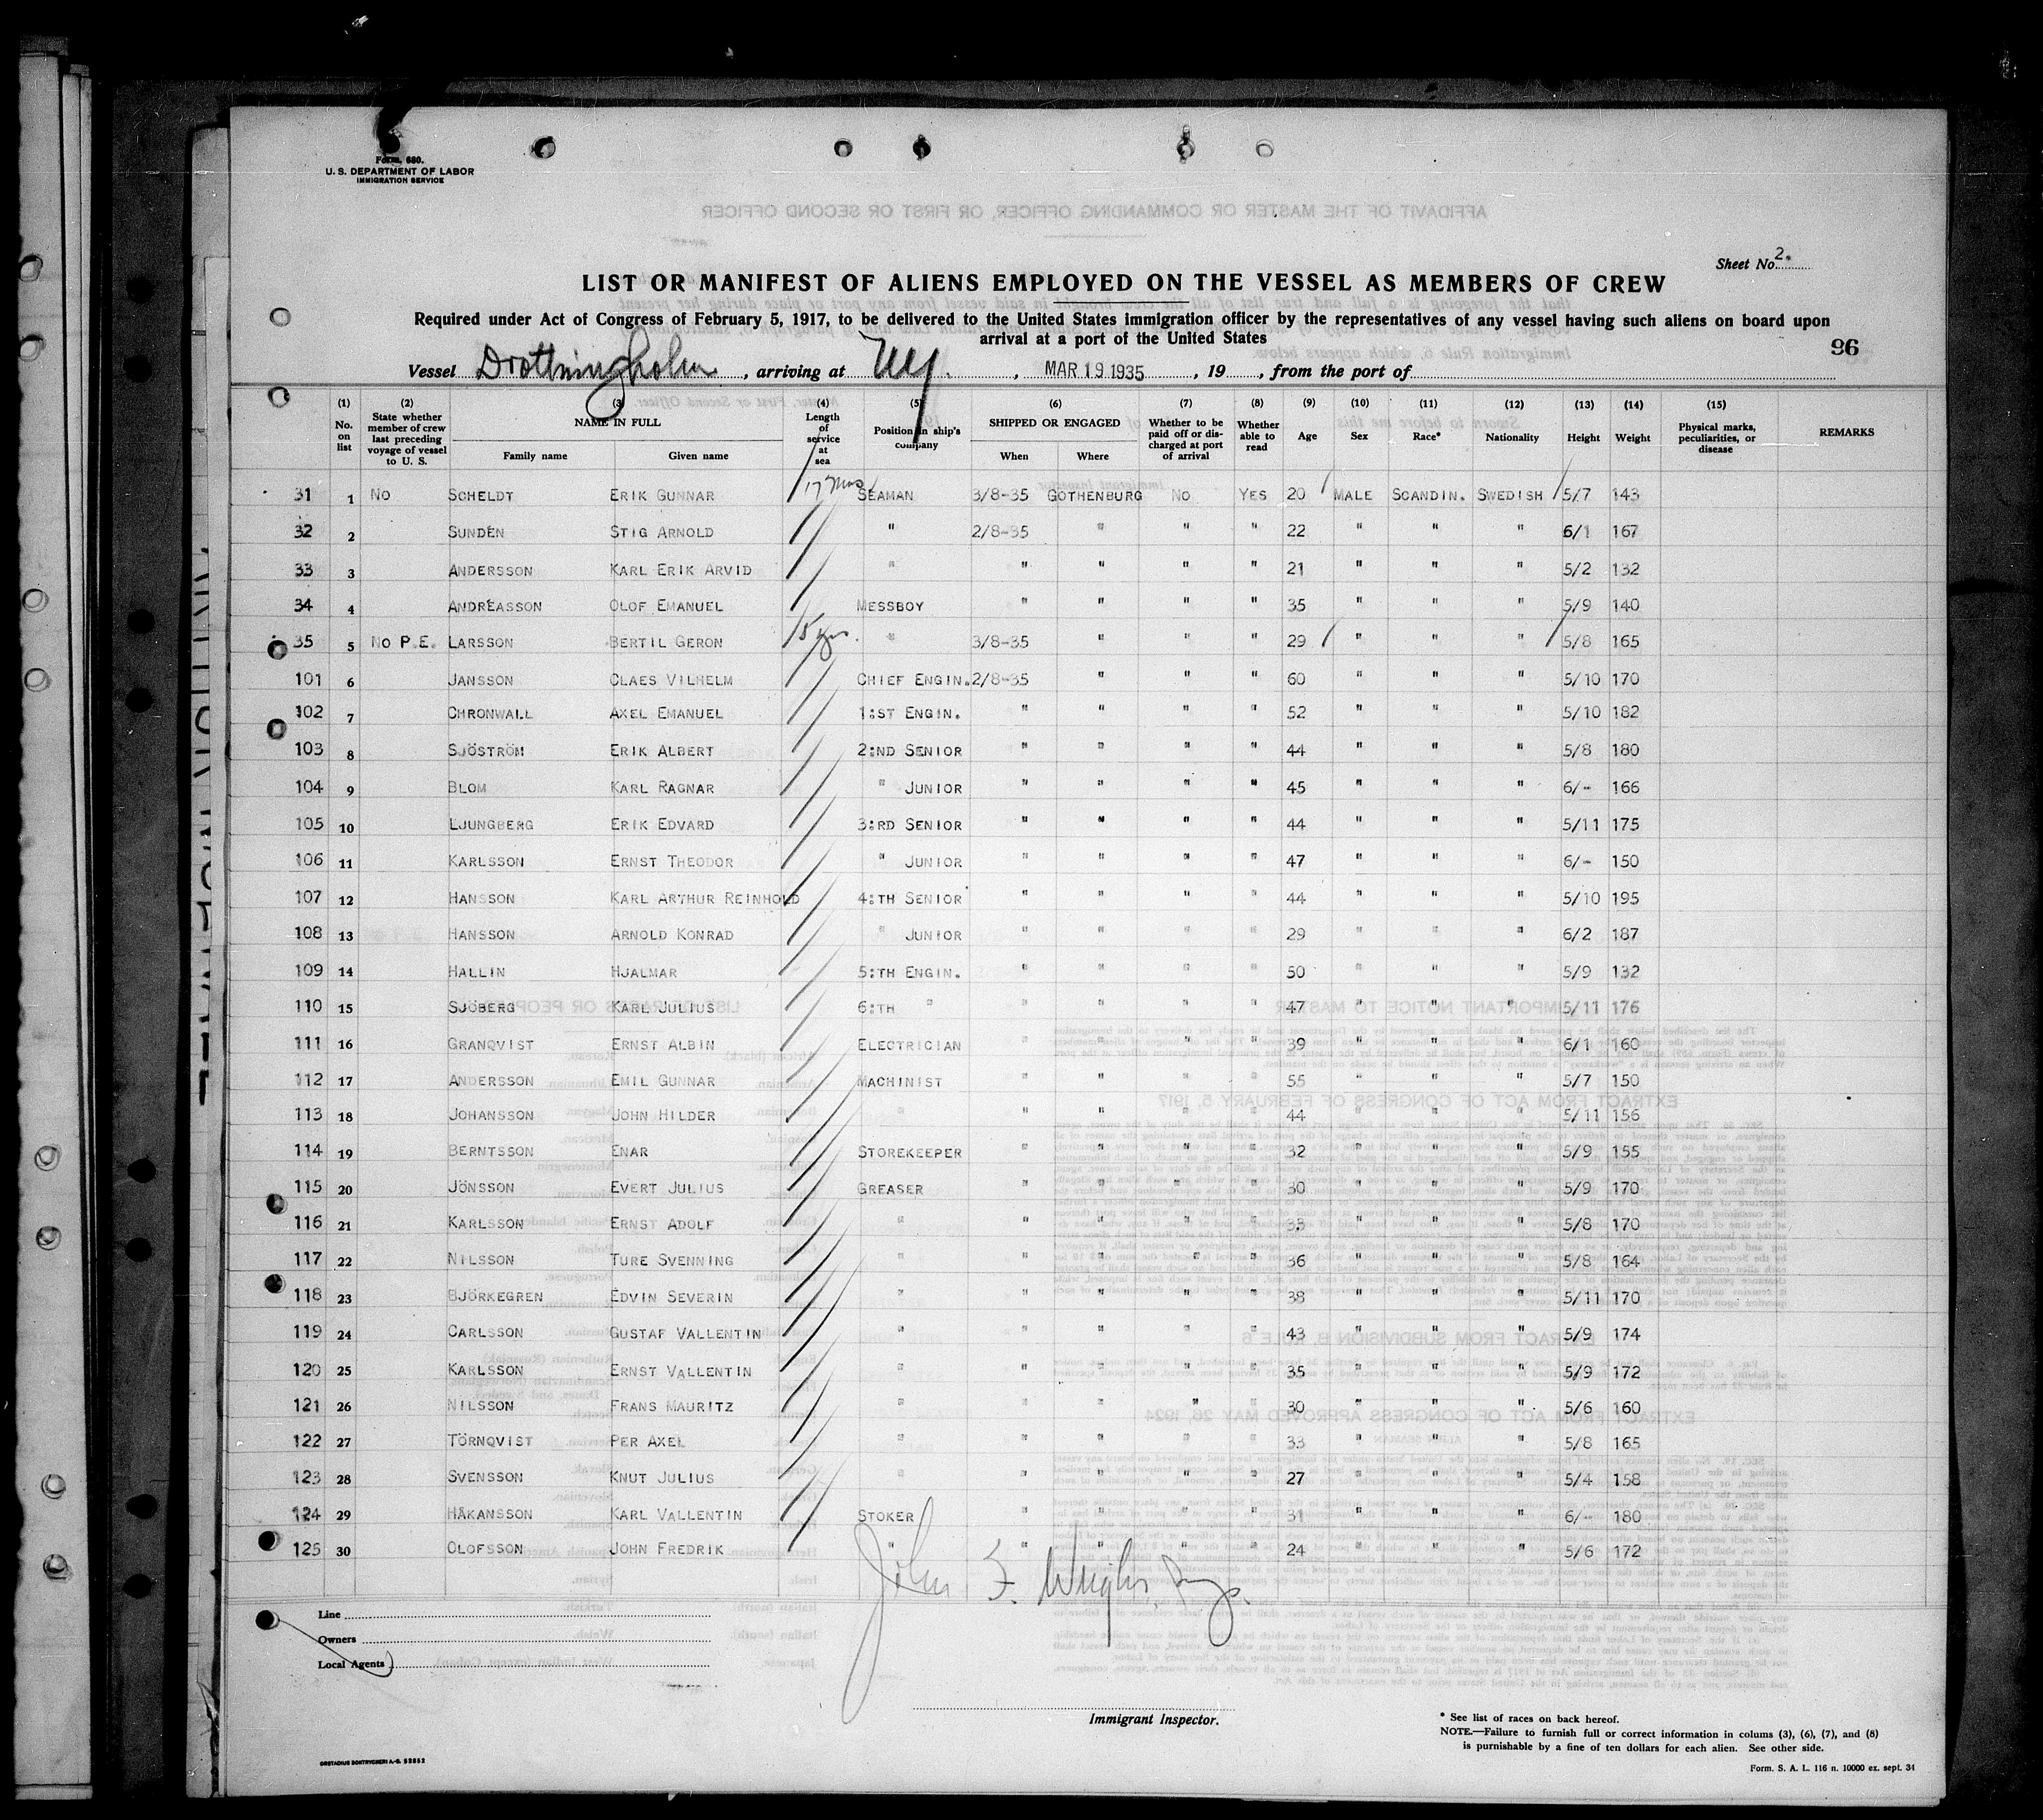 Form. 680.
U. S. DEPARTMENT OF LABOR
IMMIGRATION SERVICE
Sheet No. 2.
LIST OR MANIFEST OF ALIENS EMPLOYED ON THE VESSEL AS MEMBERS OF CREW
Required under Act of Congress of February 5, 1917, to be delivered to the United States immigration officer by the representatives of any vessel having such aliens on board upon
arrival at a port of the United States
96
Vessel Drottningholm, arriving at NY., MAR 19 1935, 19 , from the port of
(1) No. on list (2) State whether member of crew last preceding voyage of vessel to U. S. (3) NAME IN FULL Family name Given name (4) Length of service at sea (5) Position in ship's company (6) SHIPPED OR ENGAGED When Where (7) Whether to be paid off or discharged at port of arrival (8) Whether able to read (9) Age (10) Sex (11) Race* (12) Nationality (13) Height (14) Weight (15) Physical marks, peculiarities, or disease REMARKS
31 1 NO SCHELDT ERIK GUNNAR 17 mos SEAMAN 3/8-35 GOTHENBURG NO YES 20 MALE SCANDIN. SWEDISH 5/7 143
32 2 SUNDÉN STIG ARNOLD " 2/8-35 " " " 22 " " " 6/1 167
33 3 ANDERSSON KARL ERIK ARVID " " " " " 21 " " " 5/2 132
34 4 ANDRÉASSON OLOF EMANUEL MESSBOY " " " " 35 " " " 5/9 140
35 5 NO P.E. LARSSON BERTIL GERON 5 yrs. " 3/8-35 " " " 29 " " " 5/8 165
101 6 JANSSON CLAES VILHELM CHIEF ENGIN. 2/8-35 " " " 60 " " " 5/10 170
102 7 CHRONWALL AXEL EMANUEL 1:ST ENGIN. " " " " 52 " " " 5/10 182
103 8 SJÖSTRÖM ERIK ALBERT 2:ND SENIOR " " " " 44 " " " 5/8 180
104 9 BLOM KARL RAGNAR " JUNIOR " " " " 45 " " " 6/- 166
105 10 LJUNGBERG ERIK EDVARD 3:RD SENIOR " " " " 44 " " " 5/11 175
106 11 KARLSSON ERNST THEODOR " JUNIOR " " " " 47 " " " 6/- 150
107 12 HANSSON KARL ARTHUR REINHOLD 4:TH SENIOR " " " " 44 " " " 5/10 195
108 13 HANSSON ARNOLD KONRAD " JUNIOR " " " " 29 " " " 6/2 187
109 14 HALLIN HJALMAR 5:TH ENGIN. " " " " 50 " " " 5/9 132
110 15 SJÖBERG KARL JULIUS 6:TH " " " " " 47 " " " 5/11 176
111 16 GRANQVIST ERNST ALBIN ELECTRICIAN " " " " 39 " " " 6/1 160
112 17 ANDERSSON EMIL GUNNAR MACHINIST " " " " 55 " " " 5/7 150
113 18 JOHANSSON JOHN HILDER " " " " " 44 " " " 5/11 156
114 19 BERNTSSON ENAR STOREKEEPER " " " " 32 " " " 5/9 155
115 20 JÖNSSON EVERT JULIUS GREASER " " " " 30 " " " 5/9 170
116 21 KARLSSON ERNST ADOLF " " " " " 33 " " " 5/8 170
117 22 NILSSON TURE SVENNING " " " " " 36 " " " 5/8 164
118 23 BJÖRKEGREN EDVIN SEVERIN " " " " " 38 " " " 5/11 170
119 24 CARLSSON GUSTAF VALLENTIN " " " " " 43 " " " 5/9 174
120 25 KARLSSON ERNST VALLENTIN " " " " " 35 " " " 5/9 172
121 26 NILSSON FRANS MAURITZ " " " " " 30 " " " 5/6 160
122 27 TÖRNQVIST PER AXEL " " " " " 33 " " " 5/8 165
123 28 SVENSSON KNUT JULIUS " " " " " 27 " " " 5/4 158
124 29 HÅKANSSON KARL VALLENTIN STOKER " " " " 31 " " " 6/- 180
125 30 OLOFSSON JOHN FREDRIK " " " " " 24 " " " 5/6 172
John F.
Line
Owners
Local Agents
Immigrant Inspector.
* See list of races on back hereof.
NOTE.—Failure to furnish full or correct information in colums (3), (6), (7), and (8)
is punishable by a fine of ten dollars for each alien. See other side.
Form. S. A. L. 116 n. 10000 ex. sept. 34